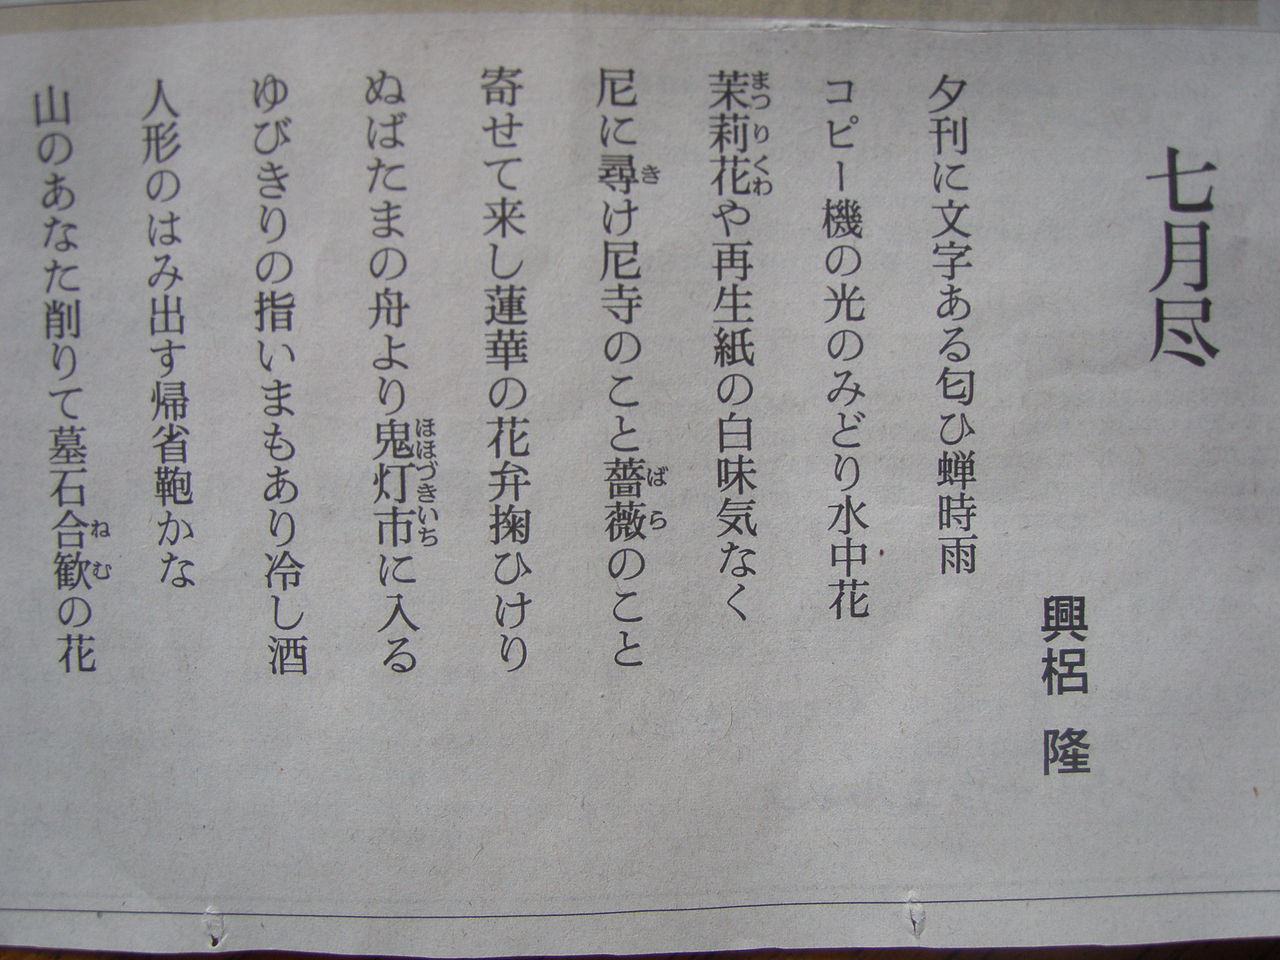 七月尽
興梠 隆
夕刊に文字ある匂ひ蝉時雨
コピー機の光のみどり水中花
茉莉花や再生紙の白味気なく
まつりくわ
尼に尋け尼寺のこと薔薇のこと
き
ばら
寄せて来し蓮華の花弁掬ひけり
ぬばたまの舟より鬼灯市に入る
ほほづきいち
ゆびきりの指いまもあり冷し酒
人形のはみ出す帰省鞄かな
山のあなた削りて墓石合歓の花
ねむ